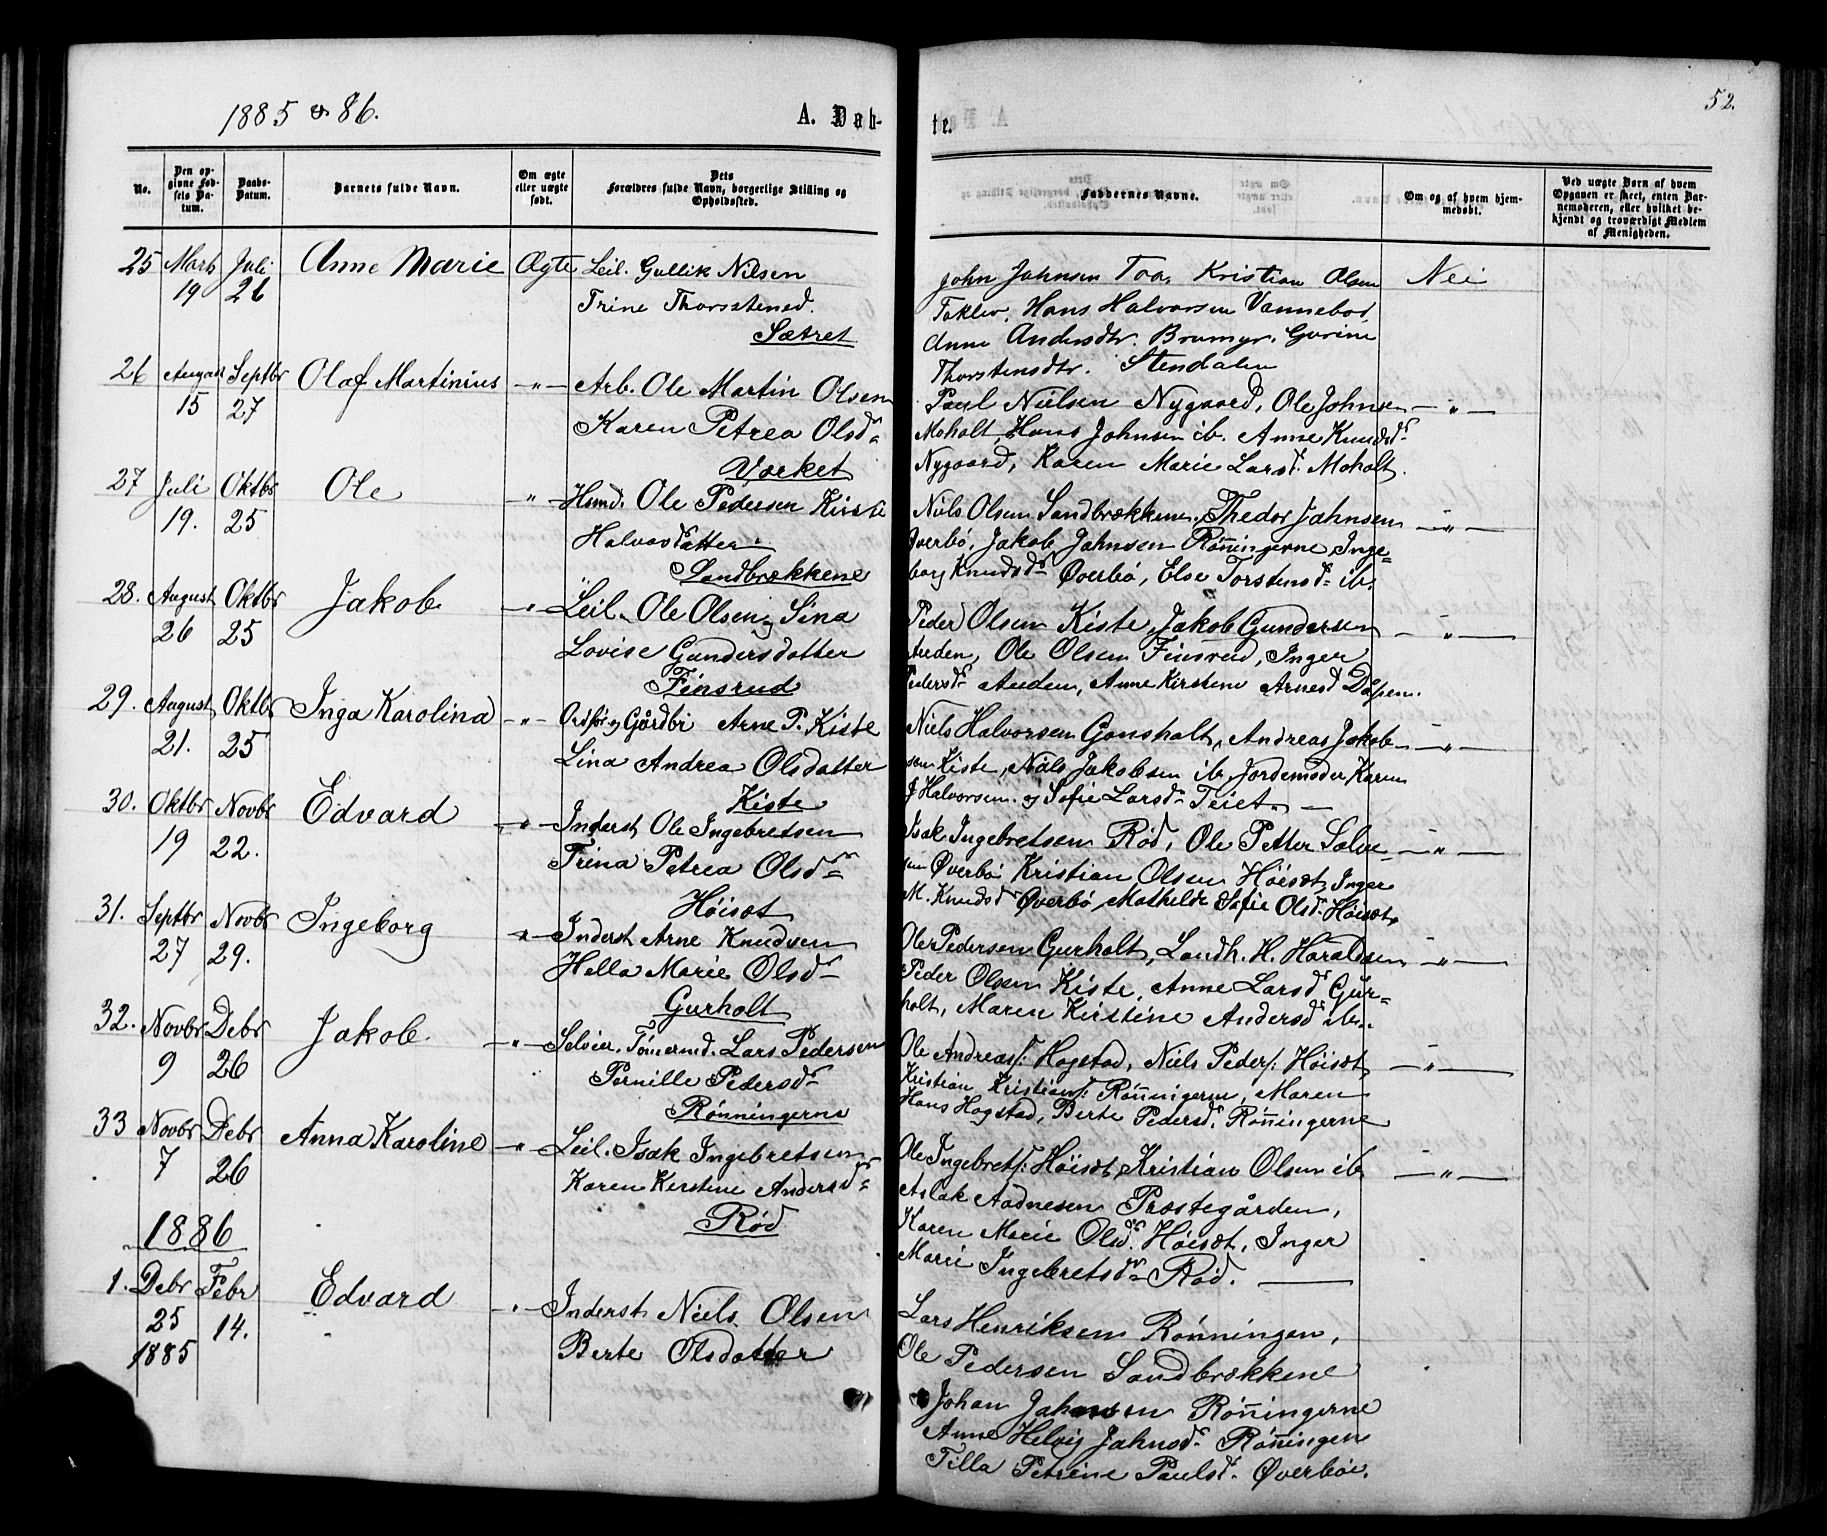 1885 & 86.
A. Døb-
te.
52.
No.
Den op-
givne Fød-
sels Da-
tum.
Daabs-
Datum.
Barnets fulde Navn.
Om ægte
eller uægte
født.
Dets
Forældres fulde Navn, borgerlige Stilling og
Opholdssted.
Faddernes Navne.
Om og af hvem hjem-
medøbt.
Ved uægte Børn af hvem
Opgaven er skeet, enten Bar-
nemoderen, eller hvilket be-
kjendt og troværdigt Medlem
af Menigheden.
25 Marts Juli Anne Marie Ægte Leil. Gullik Nilsen
19 26 Trine Thorstensd.
Sætret
John Jahnsen Toa, Kristian Olsen Nei
Toklev, Hans Halvorsen Vannebo,
Anne Andersdtr. Brumyr, Gurine
Thorstensdtr. Stendalen
26 August Septbr Olaf Martinius -"- Arb. Ole Martin Olsen
15 27 Karen Petrea Olsdr
Værket
Paul Nielsen Nygaard, Ole Johnsen -"-
Moholt, Hans Johnsen ib. Anne Knudsdr
Nygaard, Karen Marie Larsd. Moholt.
27 Juli Oktbr Ole -"- Husmd. Ole Pedersen Kirsti
19. 25 Halvorsdatter
Sandbrækkene
Niels Olsen Sandbrækkene, Thedor Jahnsen -"-
Øverbö, Jakob Jahnsen Rönningerne, Inge-
borg Knudsdr Øverbö, Else Torstensdr ib.
28. August Oktbr Jakob -"- Leil. Ole Olsen og Lina
26 25 Lovise Gundersdatter
Finsrud
Peder Olsen Kiste, Jakob Gundersen -"-
Auden, Ole Olsen Finsrud, Inger
Pedersdr Auden, Anne Kirstine Arnesd
29. August Oktbr Inga Karolina -"- Ordför. og Gårdbr Arne P. Kiste
21. 25 Lina Andrea Olsdatter
Kiste
Niels Halvorsen Gonsholt, Andreas Jakob- -"-
sen Kiste, Niels Jakobsen ib, Jordemoder Karen
J Halvorsen. og Sofie Larsdr Teiet.
30. Oktbr Novbr Edvard -"- Inderst Ole Ingebretsen
19 22. Trina Petrea Olsdr
Höisæt
Isak Ingebretsen Röd, Ole Petter Salve- -"-
sen Øverbö Kristian Olsen Höisæt, Inger
M. Knudsd Øverbö, Mathilde Sofie Olsd. Höisæt,
31. Septbr Novbr Ingeborg -"- Inderst Arne Knudsen
27 29. Hella Marie Olsdr
Gurholt
Ole Pedersen Gurholt, Landh. H. Haraldsen -"-
Peder Olsen Kiste, Anne Larsdr Gur-
holt, Maren Kirstine Andersdr ib..
32. Novbr Debr Jakob -"- Selveier, Tömermd. Lars Pedersen
9 26 Pernille Pedersdr
Rönningerne
Ole Andreasf: Hogstad, Niels Pedersf: Höisæt, -"-
Kristian Kristiansf: Rönningerne, Maren
Hans Hogstad, Berte Pedersdr Rönningerne
33 Novbr Debr Anna Karoline -"- Leil. Isak Ingebretsen
7 26 Karen Kerstine Andersdr
Röd
Ole Ingebretsf: Höisæt, Kristian Olsen ib -"-
Aslak Aadnesen Præstegården,
Karen Marie Olsdr. Höisæt, Inger
Marie Ingebretsdr Röd.
1886
1. Debr Febr Edvard -"- Inderst Niels Olsen
25 14. Berte Olsdatter
1885
Lars Henriksen Rönningen,
Ole Pedersen Sandbrækkene
Johan Jahnsen Rönningerne
Anne Helvig Jahnsdr Rönningen
Tilla Petrine Paulsdr Øverböe.